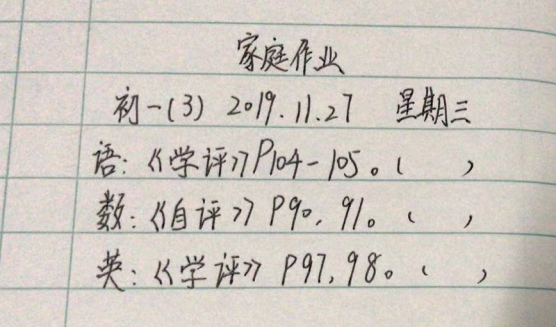 家庭作业
初一(3) 2019.11.27 星期三
语:《学评》P104-105。( )
数:《自评》P90,91。( )
英:《学评》P97,98。( )